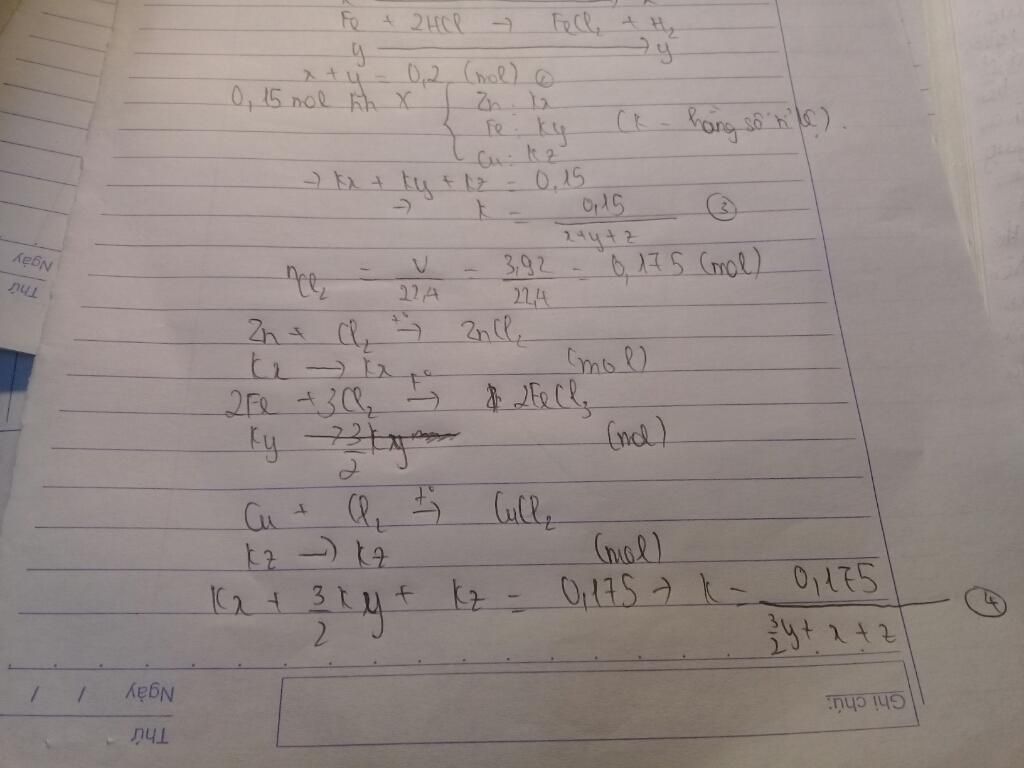 Fe + 2HCl → FeCl₂ + H₂
y → y
x + y = 0,2 (mol) ①
0,15 mol hh X { Zn : kx
Fe : ky (k - hằng số tỉ lệ).
Cu : kz
→ kx + ky + kz = 0,15
→ k = 0,15 / x+y+z ③
nCl₂ = V/22,4 = 3,92/22,4 = 0,175 (mol)
Zn + Cl₂ t°→ ZnCl₂
kx → kx (mol)
2Fe + 3Cl₂ t°→ 2FeCl₃
ky → 3/2 ky (mol)
Cu + Cl₂ t°→ CuCl₂
kz → kz (mol)
kx + 3/2 ky + kz = 0,175 → k = 0,175 / 3/2y + x + z ④
Ghi chú:
Ngày / /
Thứ
Ngày
Thứ